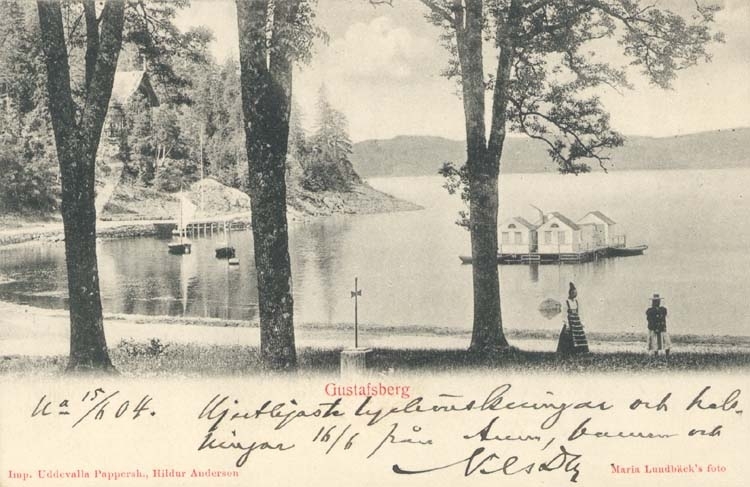 Gustafsberg
U-a 15/6 04. Hjertligaste lyckönskningar och hels-
ningar 16/6 från Anna, barnen och
Nils
Imp. Uddevalla Pappersh., Hildur Anderson
Maria Lundbäck's foto